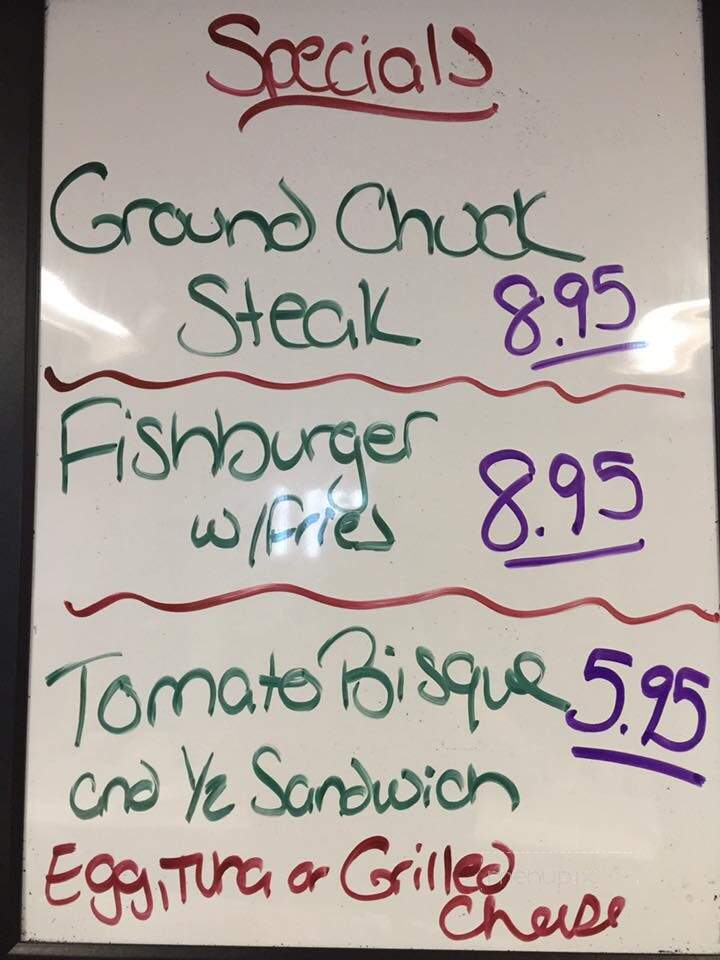 Specials
Ground Chuck
Steak 8.95
Fishburger
w/fries 8.95
Tomato Bisque 5.95
and 1/2 Sandwich
Egg, Tuna or Grilled
Cheese